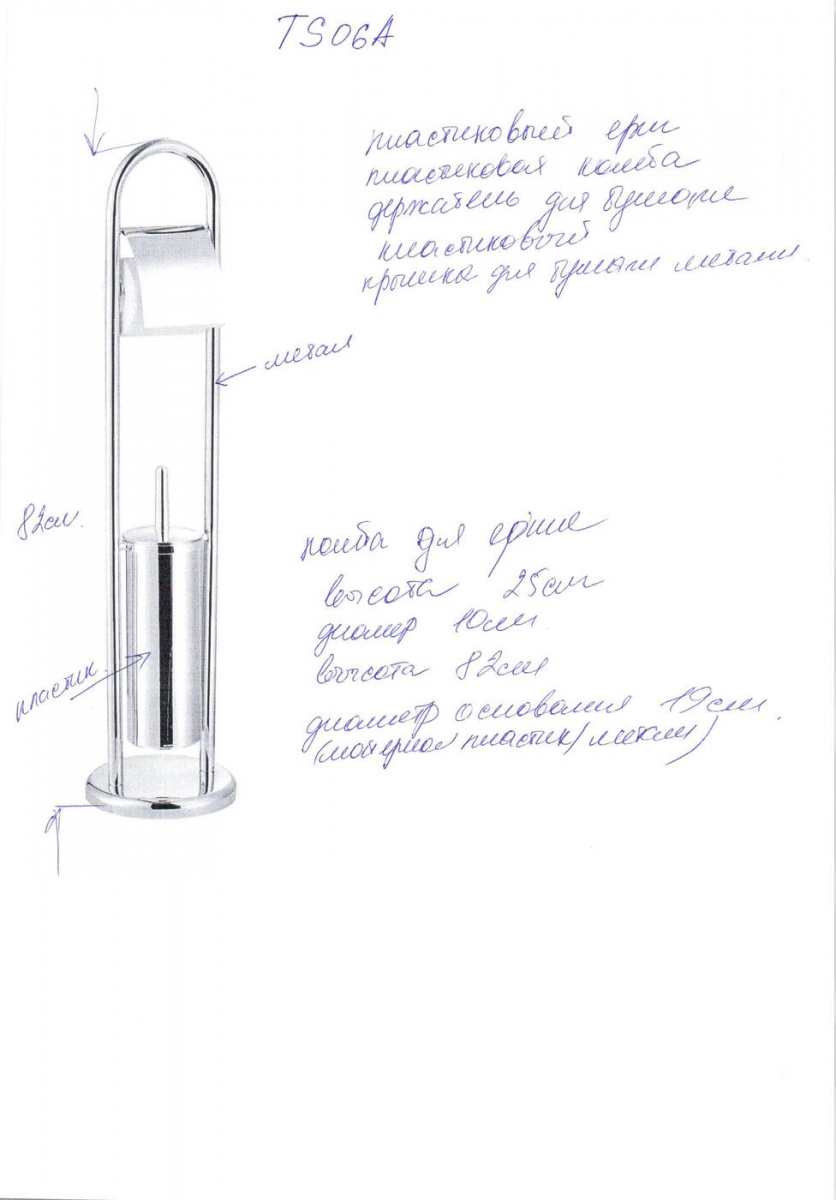 TS06A
пластиковый ерш
пластиковая колба
держатель для бумаги
пластиковый
крышка для бумаги металл.
метал
82см.
колба для ерша
высота 25см
диамер 10см
высота 82см
пластик
диаметр основания 19см.
(материал пластик/метал)